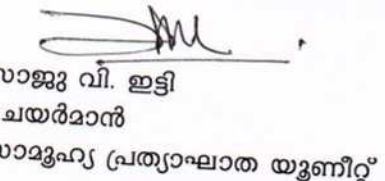 സാജു വി. ഇട്ടി
ചയർമാൻ
സാമൂഹ്യ പ്രത്യാഘാത യൂണീറ്റ്